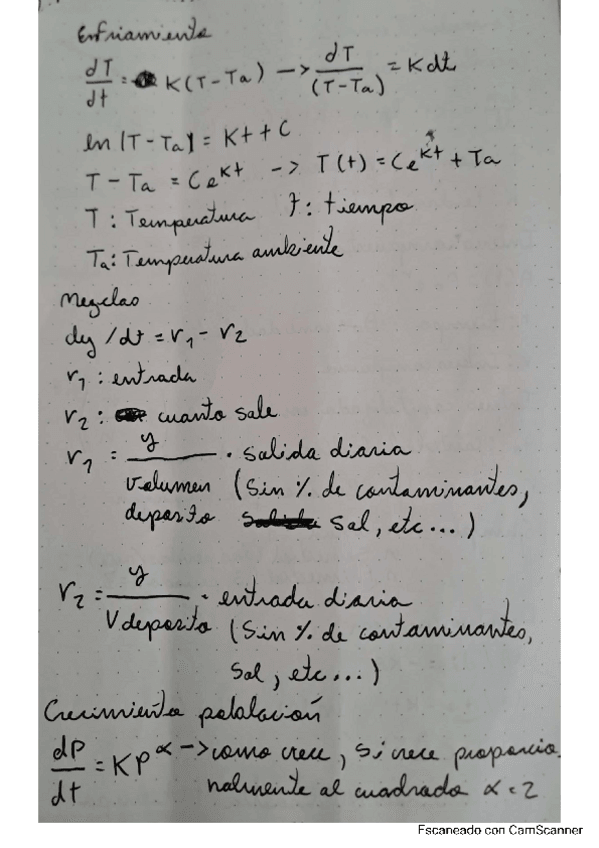 Enfriamiento
dT/dt = K(T-Ta) -> dT/(T-Ta) = Kdt
ln|T-Ta| = Kt+C
T-Ta = Ce^Kt -> T(t) = Ce^Kt + Ta
T: Temperatura t: tiempo
Ta: Temperatura ambiente
Mezclas
dy/dt = r1 - r2
r1: entrada
r2: cuanto sale
r1 = y/volumen deposito · salida diaria
(Sin % de contaminantes,
sal, etc...)
r2 = y/V deposito · entrada diaria
(Sin % de contaminantes,
sal, etc...)
Crecimiento poblacioń
dP/dt = KP^α -> como crece, si crece proporcio
nalmente al cuadrado α = 2
Escaneado con CamScanner